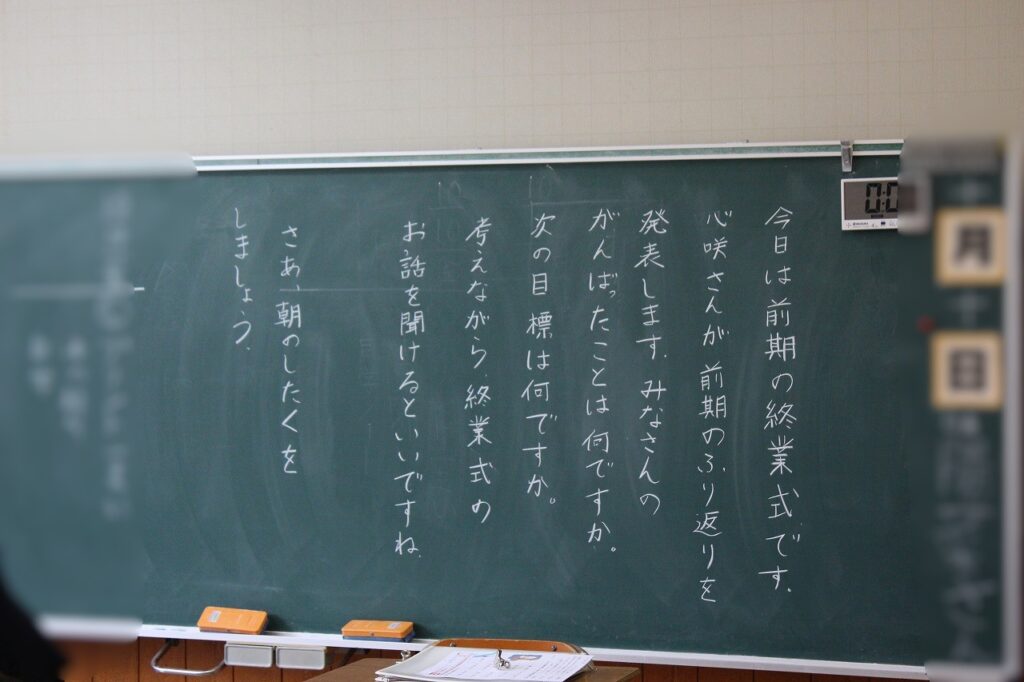 今日は前期の終業式です。
心咲さんが前期のふり返りを
発表します。みなさんの
がんばったことは何ですか。
次の目標は何ですか。
考えながら終業式の
お話を聞けるといいですね。
さあ、朝のしたくを
しましょう。
月
日